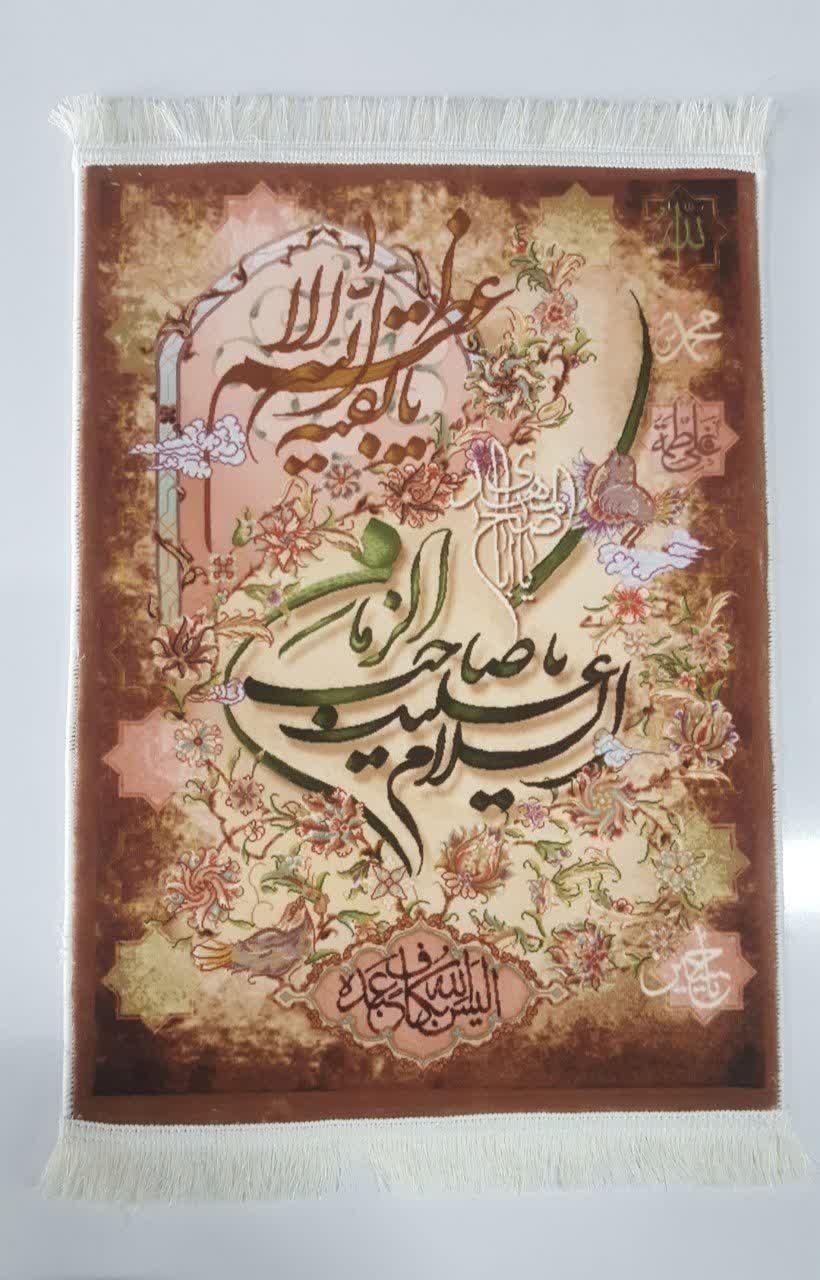 یا بقیة الله الاعظم
الله
محمد
علی
فاطمة
یا اباصالح المهدی
السلام علیک یا صاحب الزمان
یا حسین
الیس الله بکاف عبده